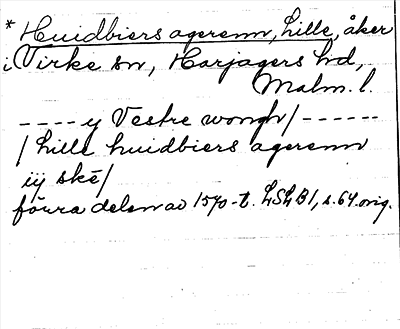 * Huidbiers agerenn, Lille, åker
i Virke sn, Harjagers hd,
Malm. l.
---- y Vestre wongh/------
/ Lille huidbiers agerenn
iij skē/
förra delen av 1570-t. LSLB1, s. 64. orig.